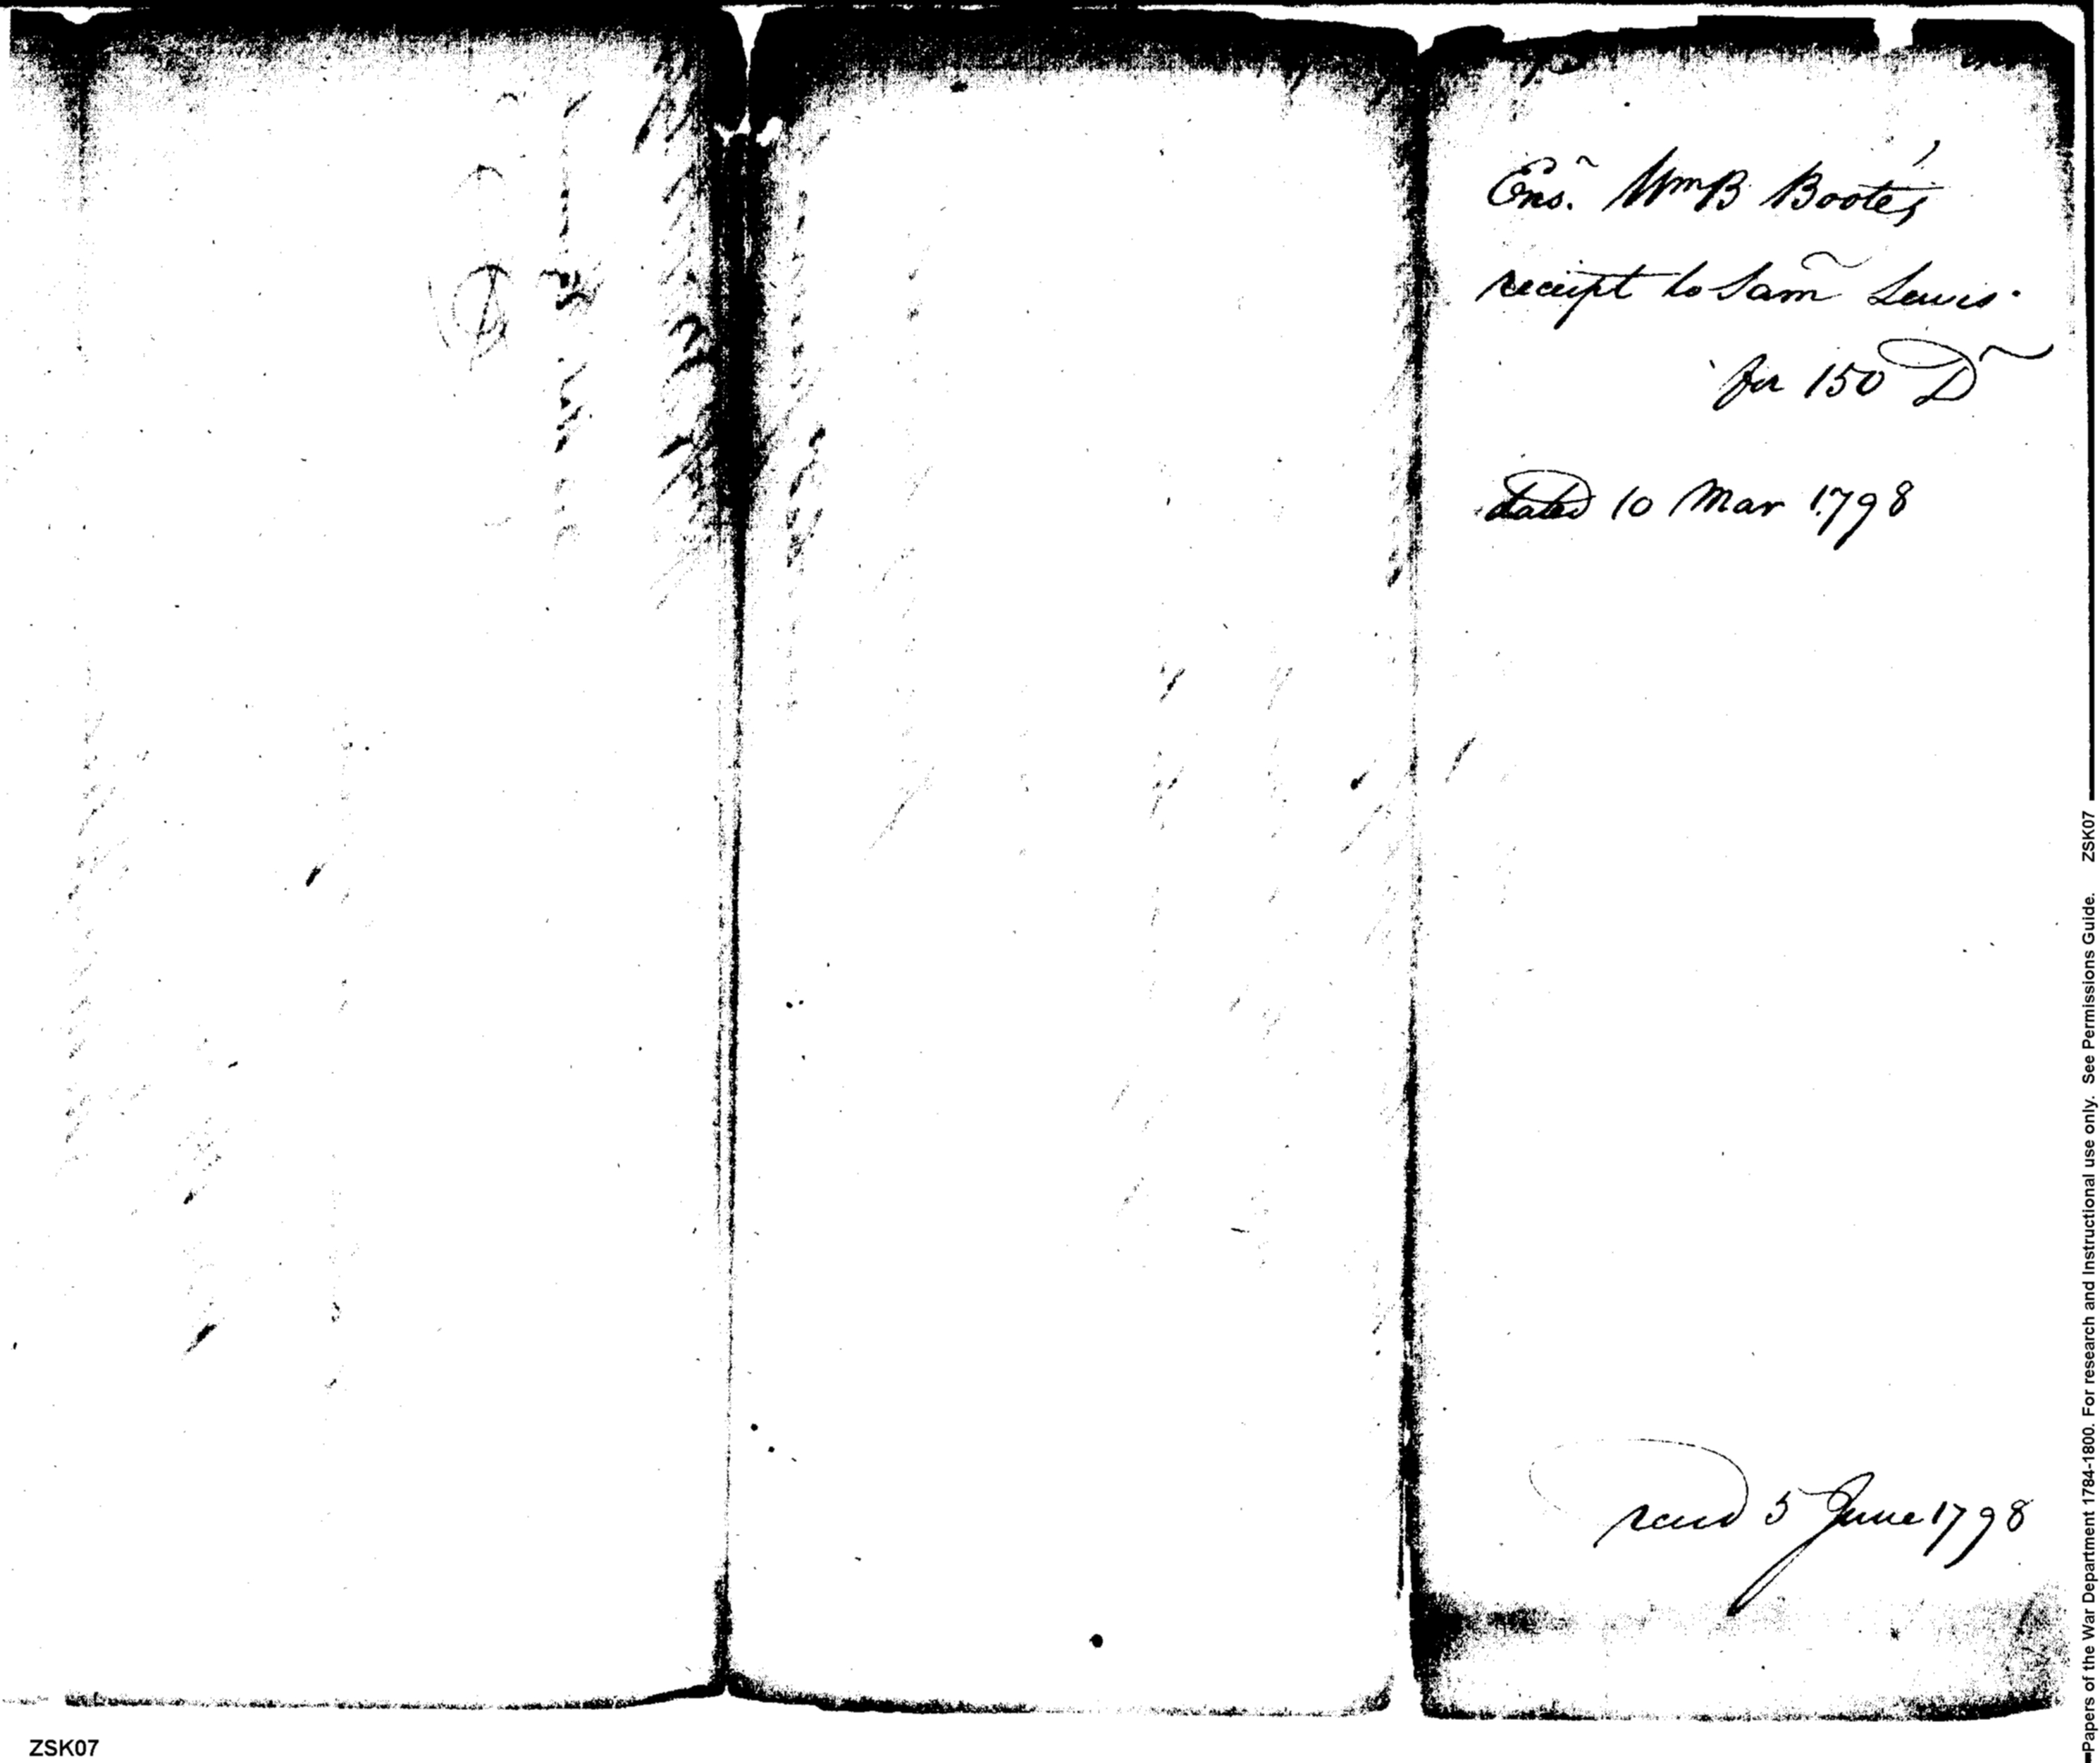 Ens. Wm B Boote's
receipt to Sam Lewis.
for 150 D
dated 10 Mar 1798
recd 5 June 1798
ZSK07
Papers of the War Department 1784-1800. For research and Instructional use only. See Permissions Guide. ZSK07